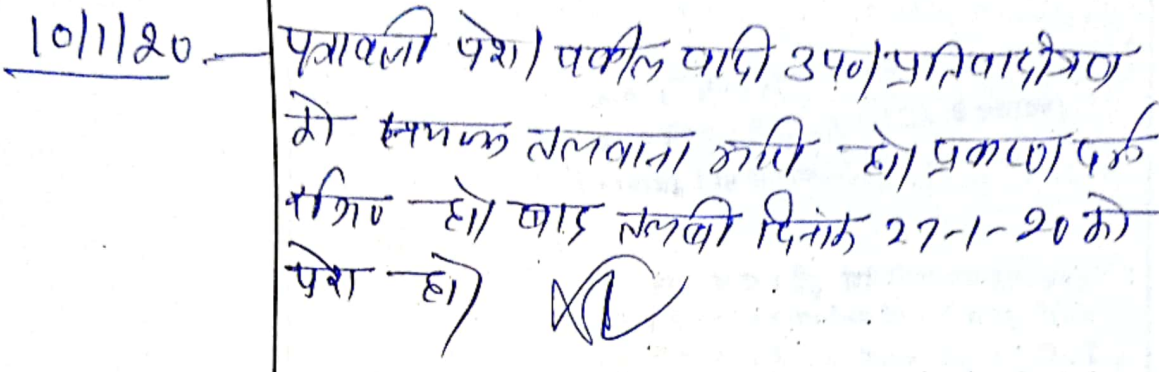 10/1/20 - पत्रावली पेश। वकील वादी उप०। प्रतिवादीगण
को तलवाना जारी हो। प्रकरण दर्ज
रजि० हो। बाद तलबी दिनांक 27-1-20 को
पेश हो।